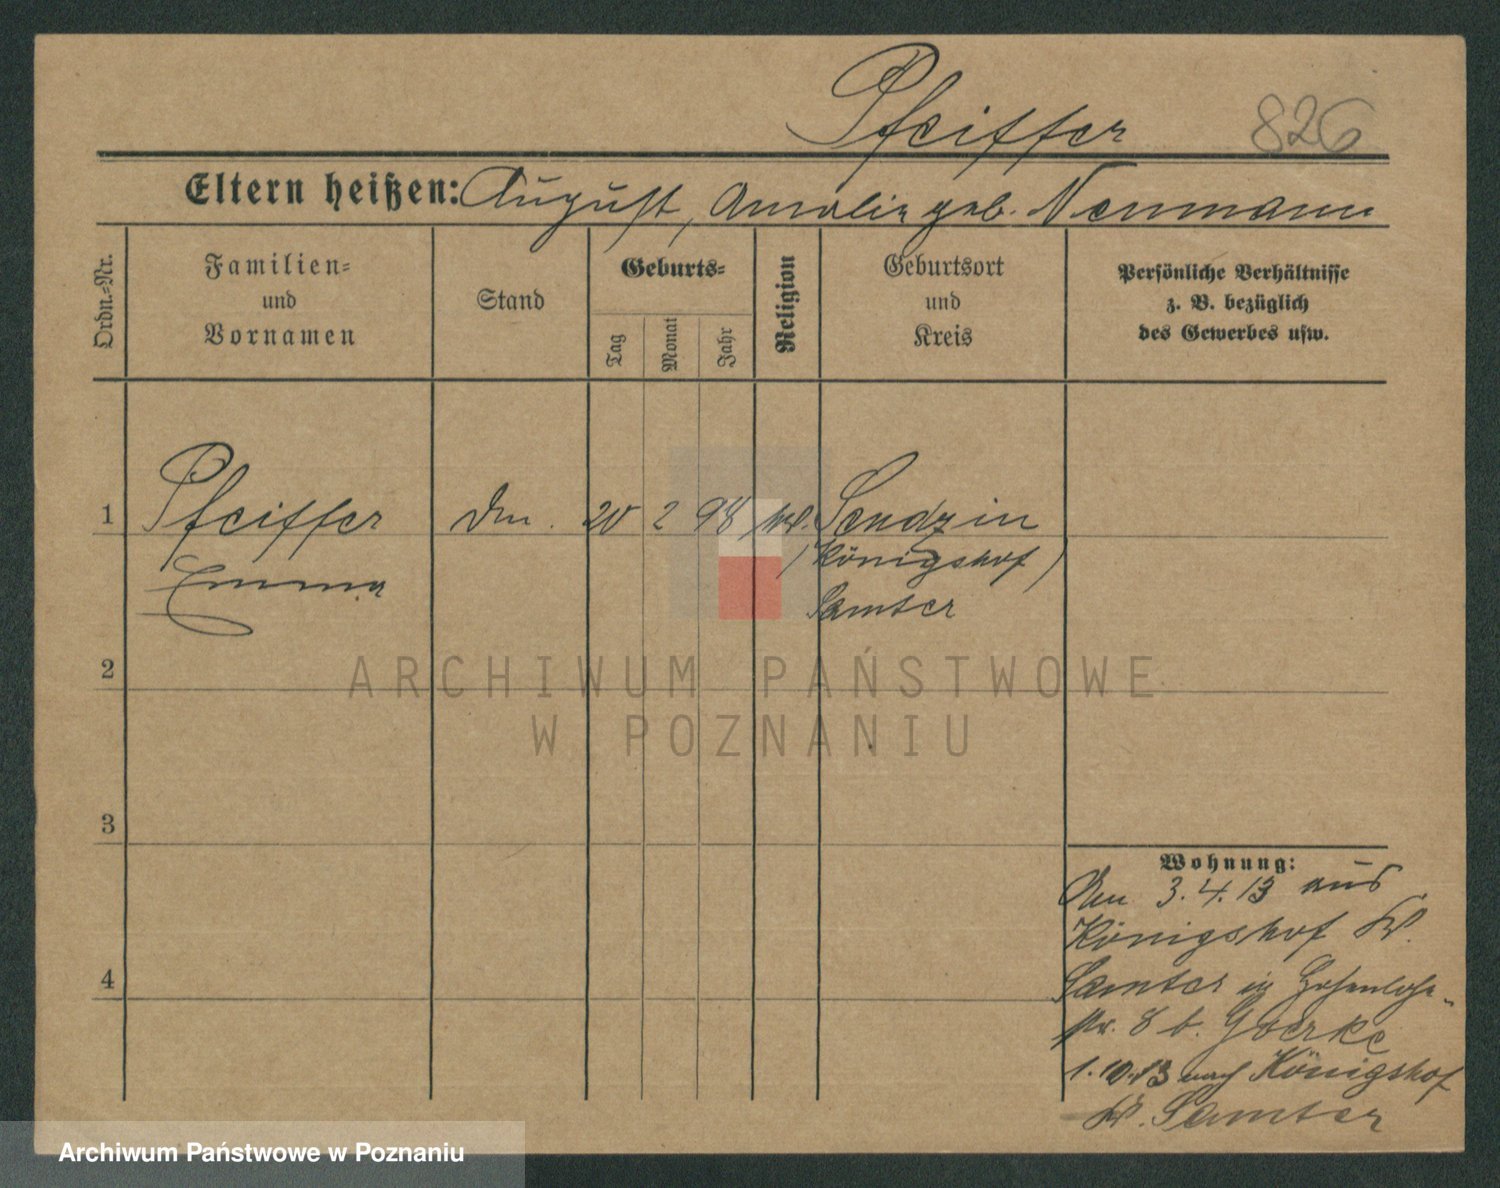 Pfeiffer 826
Eltern heißen: August, Amalie geb. Neumann
Ordn.-Nr.
Familien-
und
Vornamen
Stand
Geburts-
Tag
Monat
Jahr
Religion
Geburtsort
und
Kreis
Persönliche Verhältnisse
z. B. bezüglich
des Gewerbes usw.
1 Pfeiffer 20 2 98 Sendzin
(Königshof)
Emma
Samter
2
3
4
ARCHIWUM PAŃSTWOWE
W POZNANIU
Wohnung:
Am 3.4.13 aus
Königshof Kr.
Samter in Hohenlohe-
str. 8 b. Goerke
1.10.13 nach Königshof
Kr. Samter
Archiwum Państwowe w Poznaniu